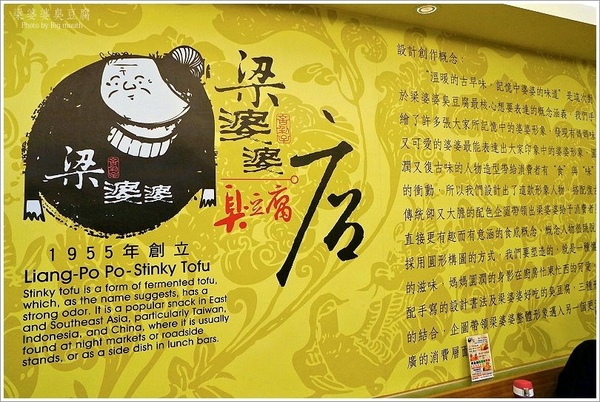 梁婆婆臭豆腐
Photo by Big mouth
梁
婆
婆
臭豆腐
店
梁婆婆
1955年創立
Liang-Po Po-Stinky Tofu
Stinky tofu is a form of fermented tofu,
which, as the name suggests, has a
strong odor. It is a popular snack in East
and Southeast Asia, particularly Taiwan,
Indonesia, and China, where it is usually
found at night markets or roadside
stands, or as a side dish in lunch bars.
設計創作概念：
"溫暖的古早味，記憶中婆婆的味道"是這次對
於梁婆婆臭豆腐最核心想要表達的概念涵義，我們手
繪了許多張大家所記憶中的婆婆形象，發現有媽媽味
又可愛的婆婆最能表達出大家印象中的婆婆形象，圓
潤又復古味的人物造型帶給消費者有"食"與"味"
的衝動，所以我們設計出了這款形象人物，搭配復古
傳統卻又大膽的配色企圖帶領出梁婆婆給予消費者
直接更有趣而有意涵的食感概念，概念人物
採用圓形構圖的方式，我們要塑造的，就是一種
的滋味，媽媽圓潤的身影在廚房忙碌
配手寫的設計書法及梁婆婆好吃的臭豆腐，三種
的結合，企圖帶領梁婆婆整體形象邁入另一個更
廣的消費層面